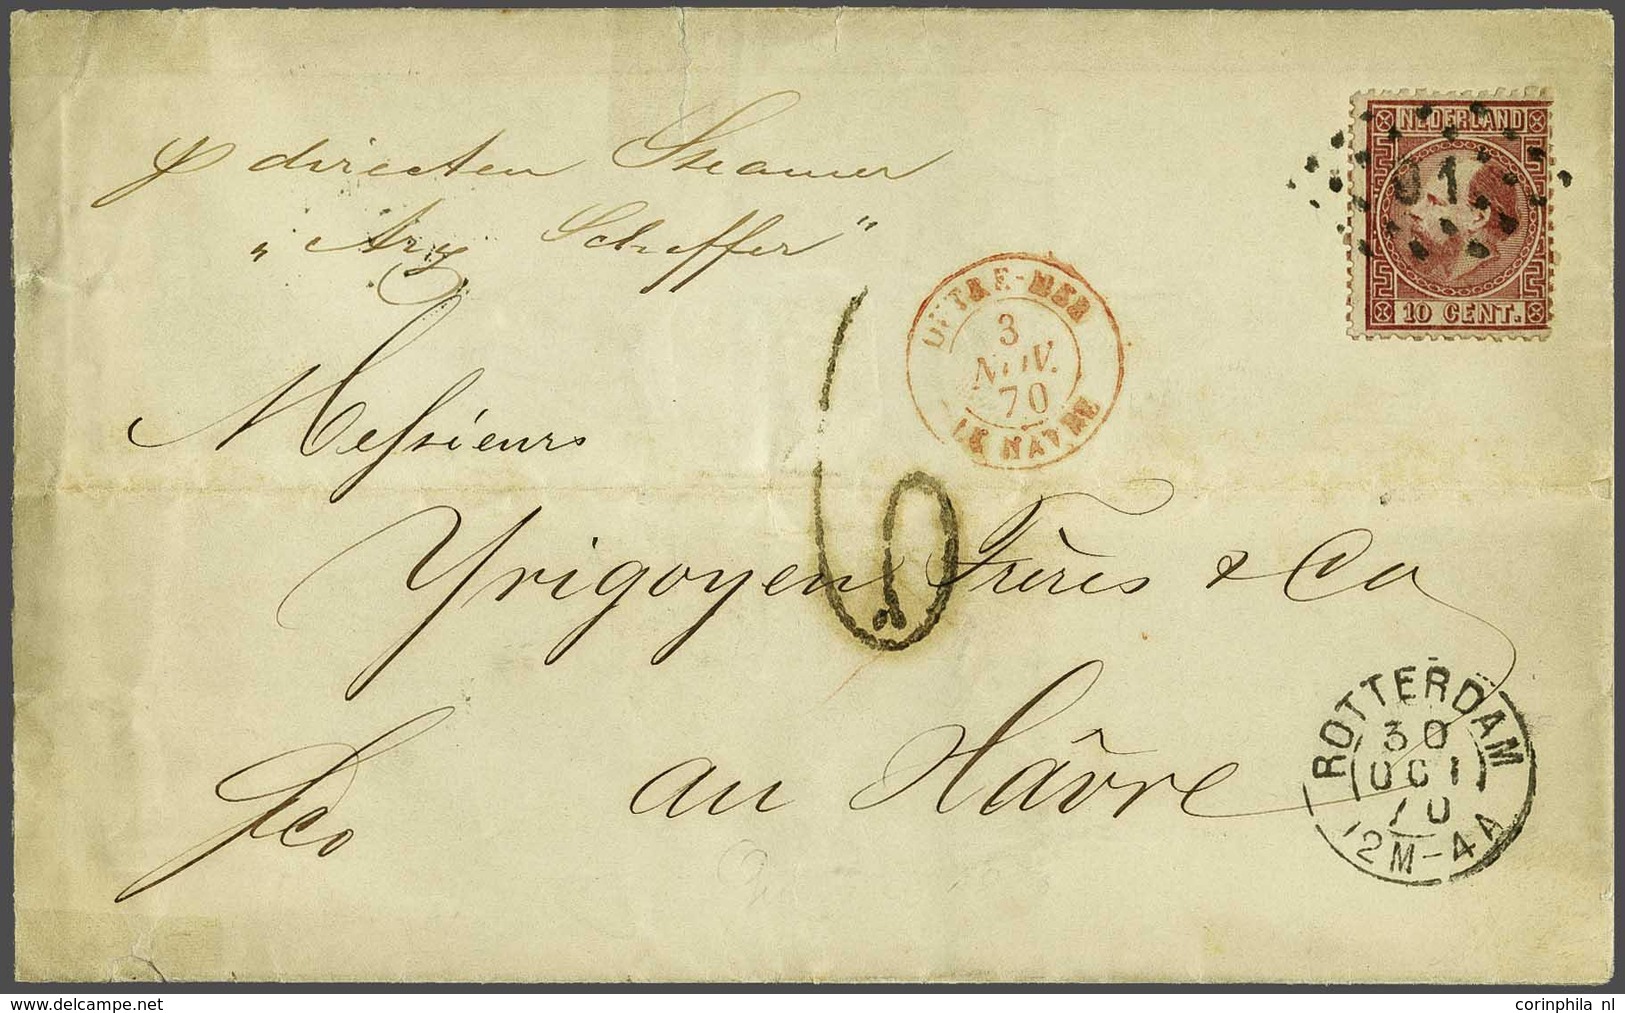 p directen Steamer
„Ary Scheffer"
NEDERLAND
91
10 CENT.
OUTRE-MER
3
NOV.
70
LE HAVRE
6
Messieurs
Yrigoyen Frères & Co
au Hâvre
fco
ROTTERDAM
30
OCT
70
12M-4A
delcampe.net
corinphila nl